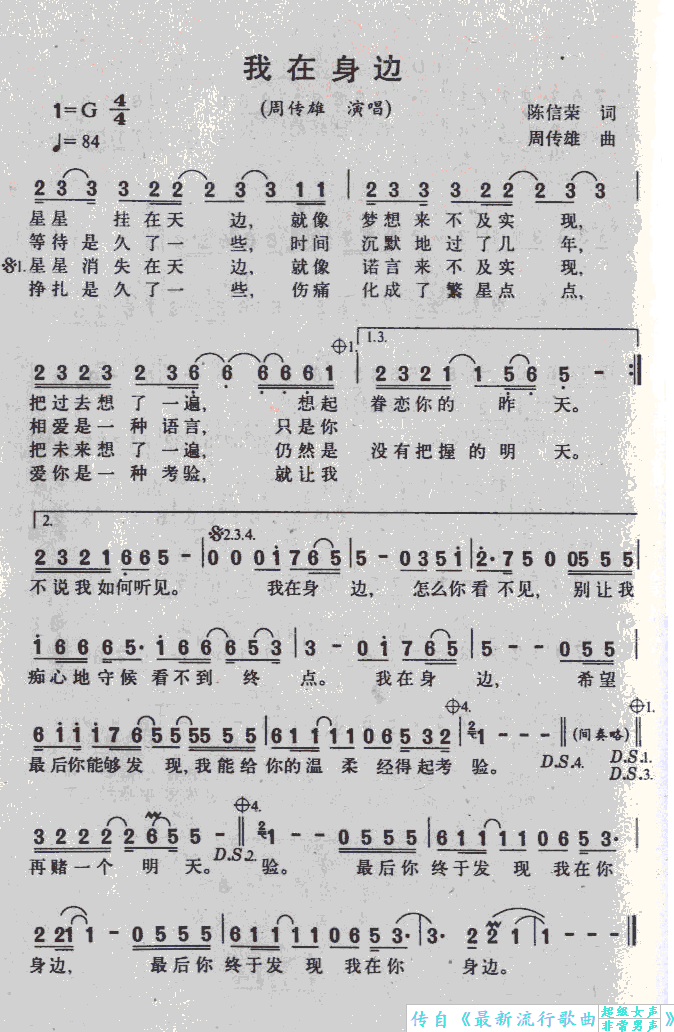 我在身边
1=G 4/4 (周传雄 演唱) 陈信荣 词
♩=84 周传雄 曲
2 3 3 3 2 2 2 2 3 3 1 1 | 2 3 3 3 2 2 2 3 3 |
星星 挂在天 边, 就像 梦想来不及实 现,
等待是久了一 些, 时间 沉默地过了几 年,
𝄋1.星星消失在天 边, 就像 诺言来不及实 现,
挣扎是久了一 些, 伤痛 化成了繁星点 点,
𝄌1. 1.3.
2 3 2 3 2 3 6 6 6 6 6 1 | 2 3 2 1 1 5 6 5 - :||
把过去想了一遍, 想起 眷恋你的 昨 天。
相爱是一种语言, 只是你
把未来想了一遍, 仍然是 没有把握的明 天。
爱你是一种考验, 就让我
2. 𝄋2.3.4.
2 3 2 1 6 6 5 - | 0 0 0 i 7 6 5 | 5 - 0 3 5 i | 2· 7 5 0 0 5 5 5
不说我如何听见。 我在身 边, 怎么你看不见, 别让我
i 6 6 6 5· i 6 6 6 5 3 | 3 - 0 i 7 6 5 | 5 - - 0 5 5
痴心地守候 看不到 终 点。 我在身 边, 希望
𝄌4. 𝄌1.
6 i i i 7 6 5 5 5 5 5 | 6 1 1 1 1 1 0 6 5 3 2 | 2 1 - - - || (间奏略) ||
最后你能够发 现,我能给你的温 柔 经得起考 验。 D.S.4. D.S.1.
D.S.3.
𝄌4.
3 2 2 2 2 2 6 5 5 - || 2 1 - - 0 5 5 5 | 6 1 1 1 1 1 0 6 5 3·
再赌一个 明 天。D.S.2. 验。 最后你 终于发 现 我在你
2 2 1 1 - 0 5 5 5 | 6 1 1 1 1 1 0 6 5 3· | 3· 2 2 1 | 1 - - - ||
身边, 最后你 终于发 现 我在你 身边。
传自《最新流行歌曲 超级女声 非常男声》